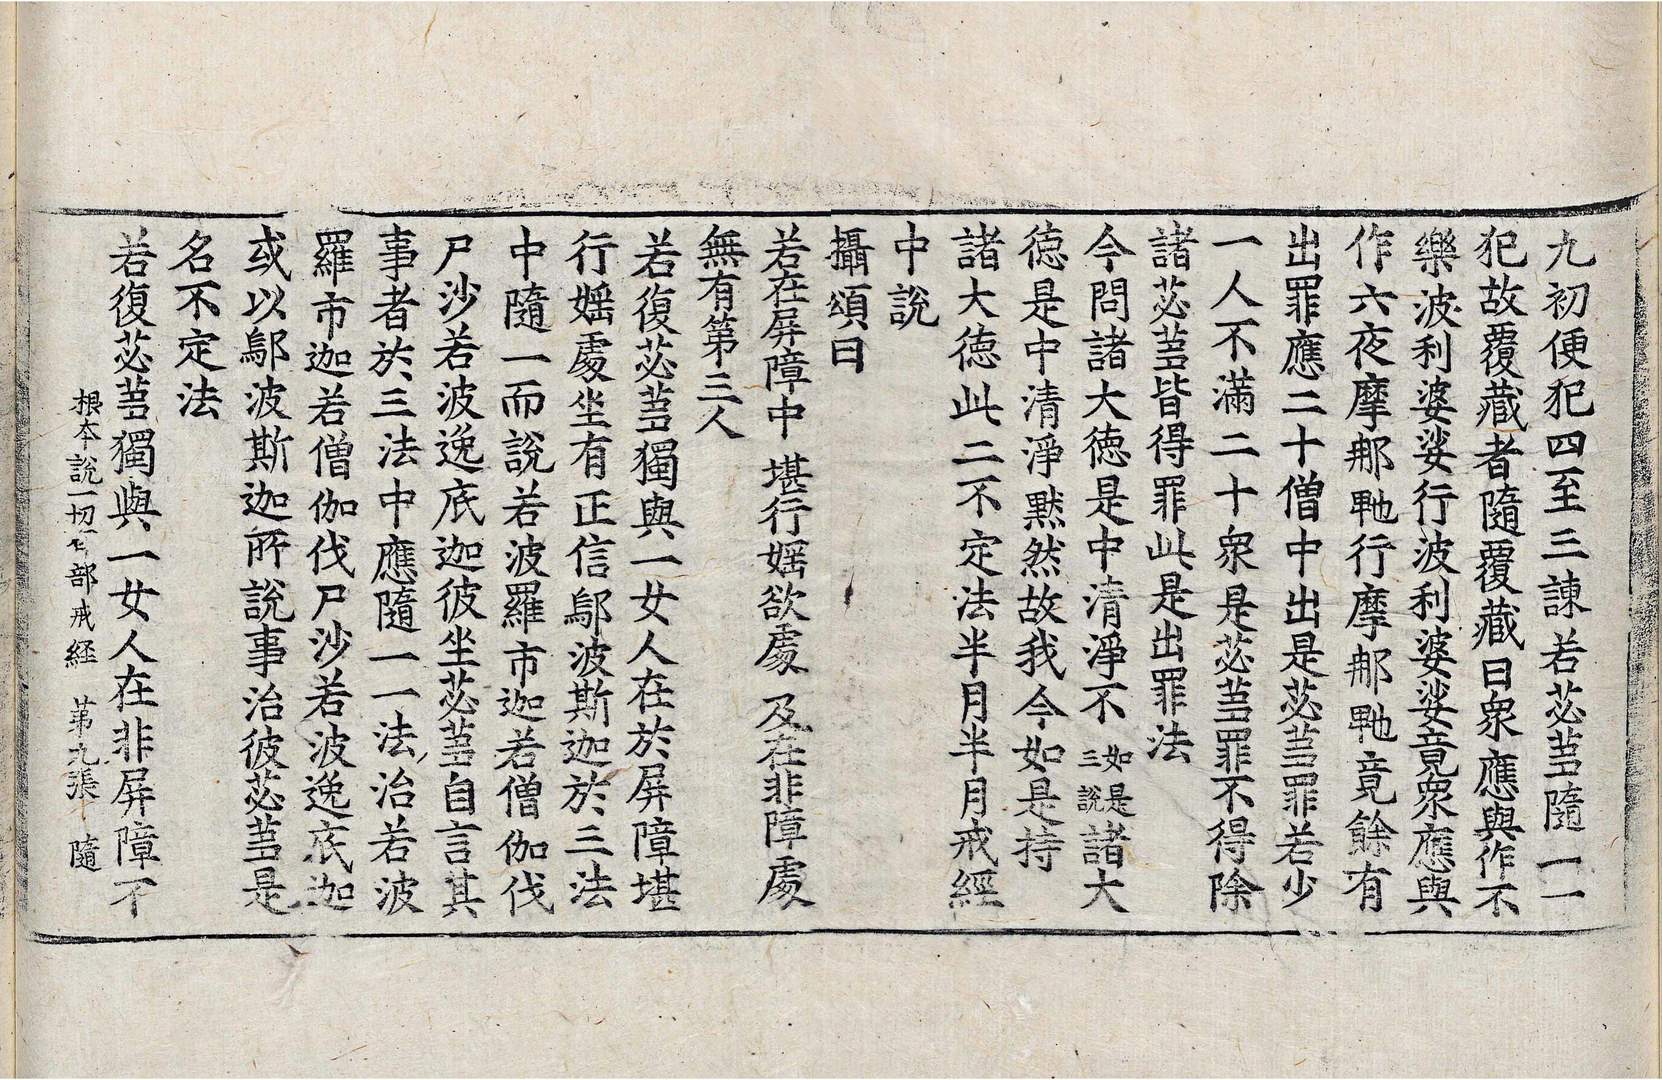 九初便犯四至三諫若苾蒭隨一一
犯故覆藏者隨覆藏日衆應與作不
樂波利婆娑行波利婆娑竟衆應與
作六夜摩那𭉨行摩那𭉨竟餘有
出罪應二十僧中出是苾蒭罪若少
一人不滿二十衆是苾蒭罪不得除
諸苾蒭皆得罪此是出罪法
今問諸大德是中清淨不如是三說諸大
德是中清淨默然故我今如是持
諸大德此二不定法半月半月戒經
中說
攝頌曰
若在屏障中 堪行婬欲處 及在非障處
無有第三人
若復苾蒭獨與一女人在於屏障堪
行婬處坐有正信鄔波斯迦於三法
中隨一而說若波羅市迦若僧伽伐
尸沙若波逸底迦彼坐苾蒭自言其
事者於三法中應隨一一法治若波
羅市迦若僧伽伐尸沙若波逸底迦
或以鄔波斯迦所說事治彼苾蒭是
名不定法
若復苾蒭獨與一女人在非屏障不
根本說一切有部戒經 第九張 隨